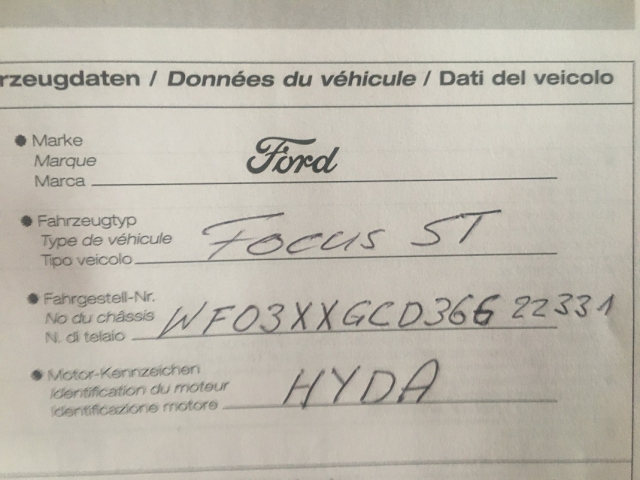 rzeugdaten / Données du véhicule / Dati del veicolo
Marke
Marque
Marca Ford
Fahrzeugtyp
Type de véhicule
Tipo veicolo Focus ST
Fahrgestell-Nr.
No du châssis
N. di telaio WF03XXGCD36622331
Motor-Kennzeichen
Identification du moteur
Identificazione motore HYDA